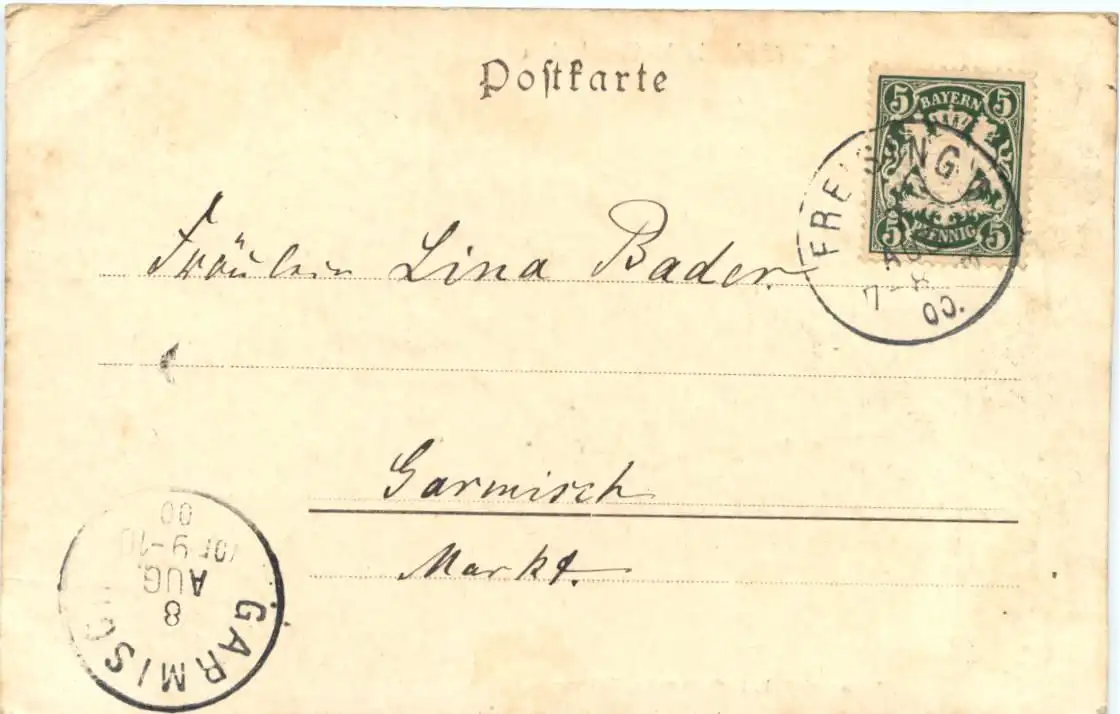 Postkarte
5 BAYERN 5
5 PFENNIG 5
FREISING
AUG
7-8
00.
Fräulein Lina Bader.
Garmisch
Markt.
GARMISCH
8
AUG.
VOR 9-10
00